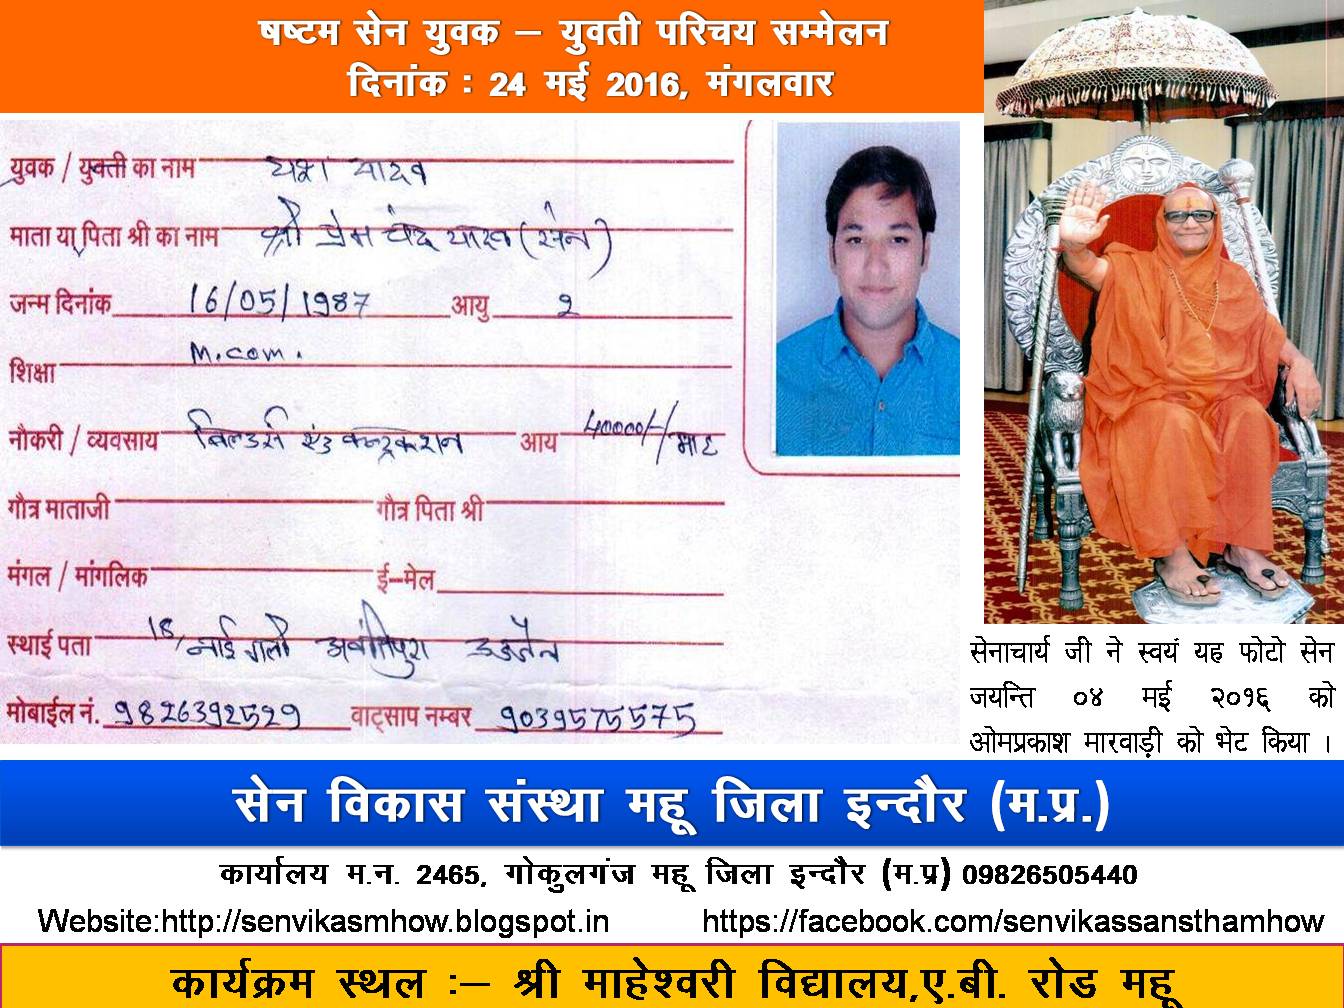 षष्टम सेन युवक – युवती परिचय सम्मेलन
दिनांक : 24 मई 2016, मंगलवार
युवक / युवती का नाम यश यादव
माता या पिता श्री का नाम श्री प्रेम चंद्र यादव (सेन)
जन्म दिनांक 16/05/1987 आयु 2
शिक्षा M.com.
नौकरी / व्यवसाय बिल्डर्स एंड कन्ट्रक्शन आय 40000/-/माह
गौत्र माताजी गौत्र पिता श्री
मंगल / मांगलिक ई–मेल
स्थाई पता 18, नाई गली अवंतिपुरा उज्जैन
मोबाईल नं. 9826392529 वाट्साप नम्बर 9039575575
सेनाचार्य जी ने स्वयं यह फोटो सेन
जयन्ति ०४ मई २०१६ को
ओमप्रकाश मारवाड़ी को भेट किया ।
सेन विकास संस्था महू जिला इन्दौर (म.प्र.)
कार्यालय म.न. 2465, गोकुलगंज महू जिला इन्दौर (म.प्र) 09826505440
Website:http://senvikasmhow.blogspot.in https://facebook.com/senvikassansthamhow
कार्यक्रम स्थल :– श्री माहेश्वरी विद्यालय,ए.बी. रोड महू